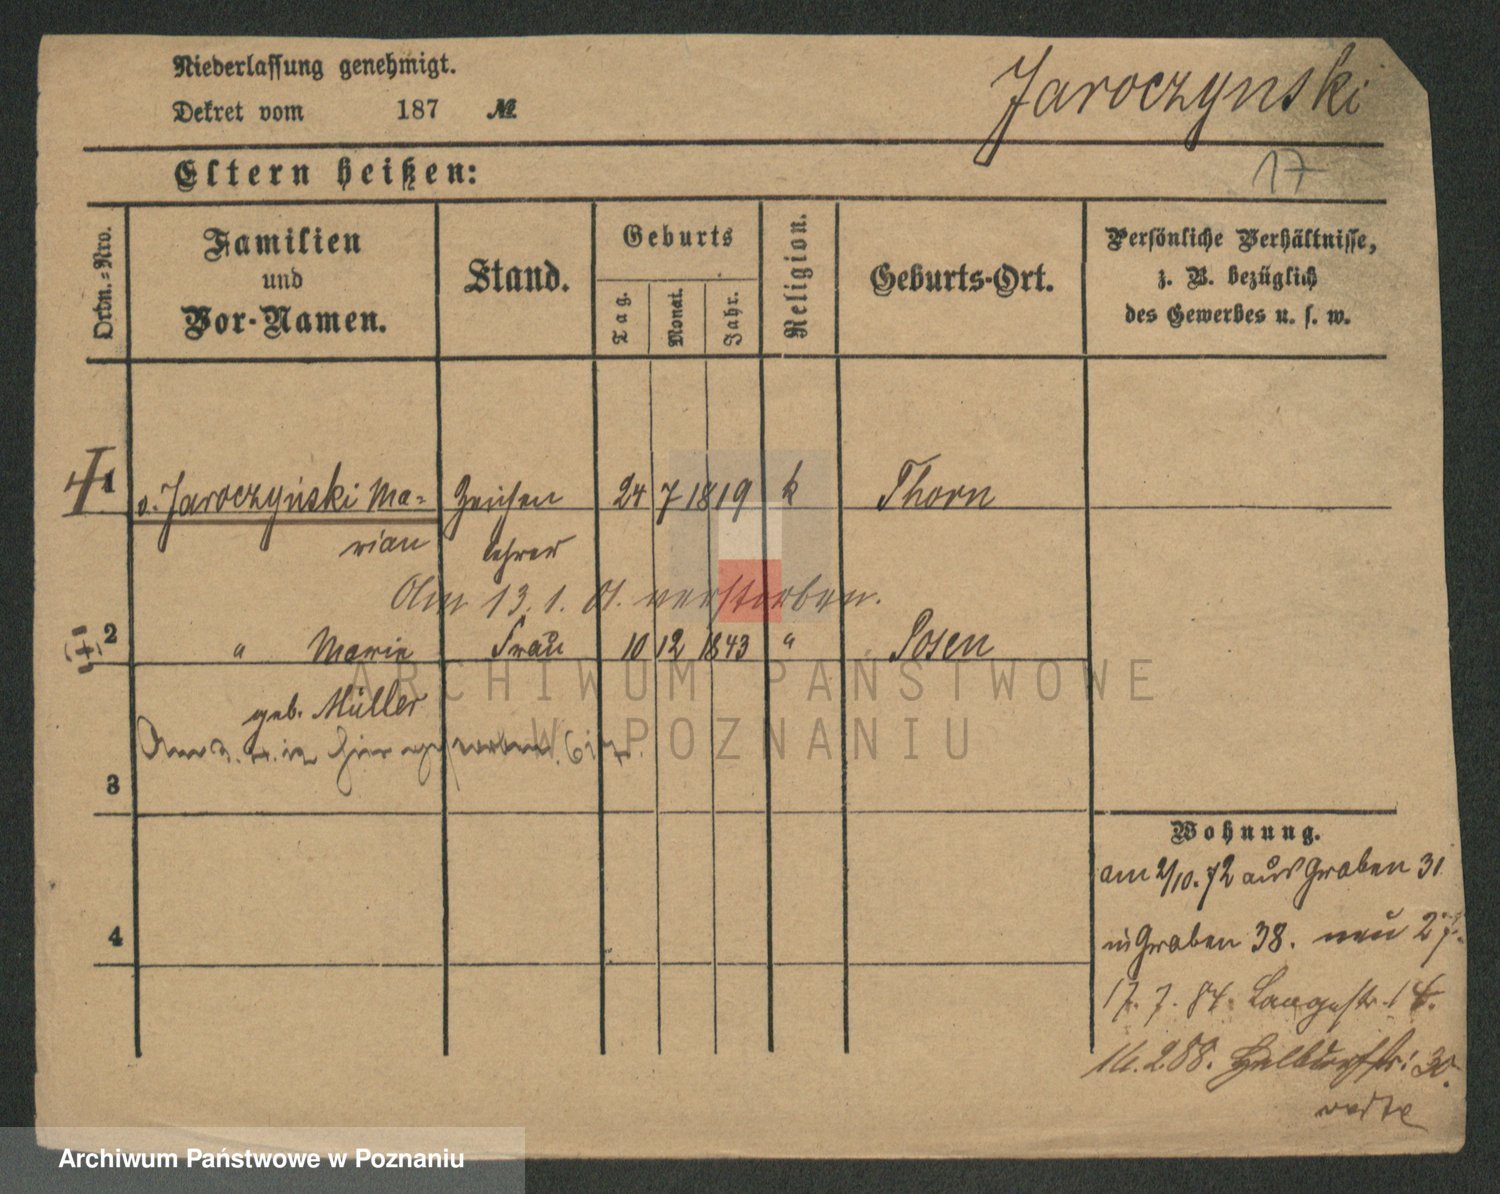 Niederlassung genehmigt.
Dekret vom 187 №
Jaroczynski
17
Eltern heißen:
Ordn.-Nro.
Familien und Vor-Namen.
Stand.
Geburts
Tag.
Monat.
Jahr.
Religion.
Geburts-Ort.
Persönliche Verhältnisse,
z. B. bezüglich
des Gewerbes u. s. w.
1 v. Jaroczyński Ma- Zeichen 24 7 1819 k Thorn
rian lehrer
Am 13. 1. 01. verstorben.
2 " Marie Frau 10 12 1843 " Posen
geb. Müller
3
4
Wohnung.
am 2/10. 72 aus Graben 31
in Graben 38. neu 27.
17. 7. 84. Langestr.
88. 30.
verte
ARCHIWUM PAŃSTWOWE
W POZNANIU
Archiwum Państwowe w Poznaniu